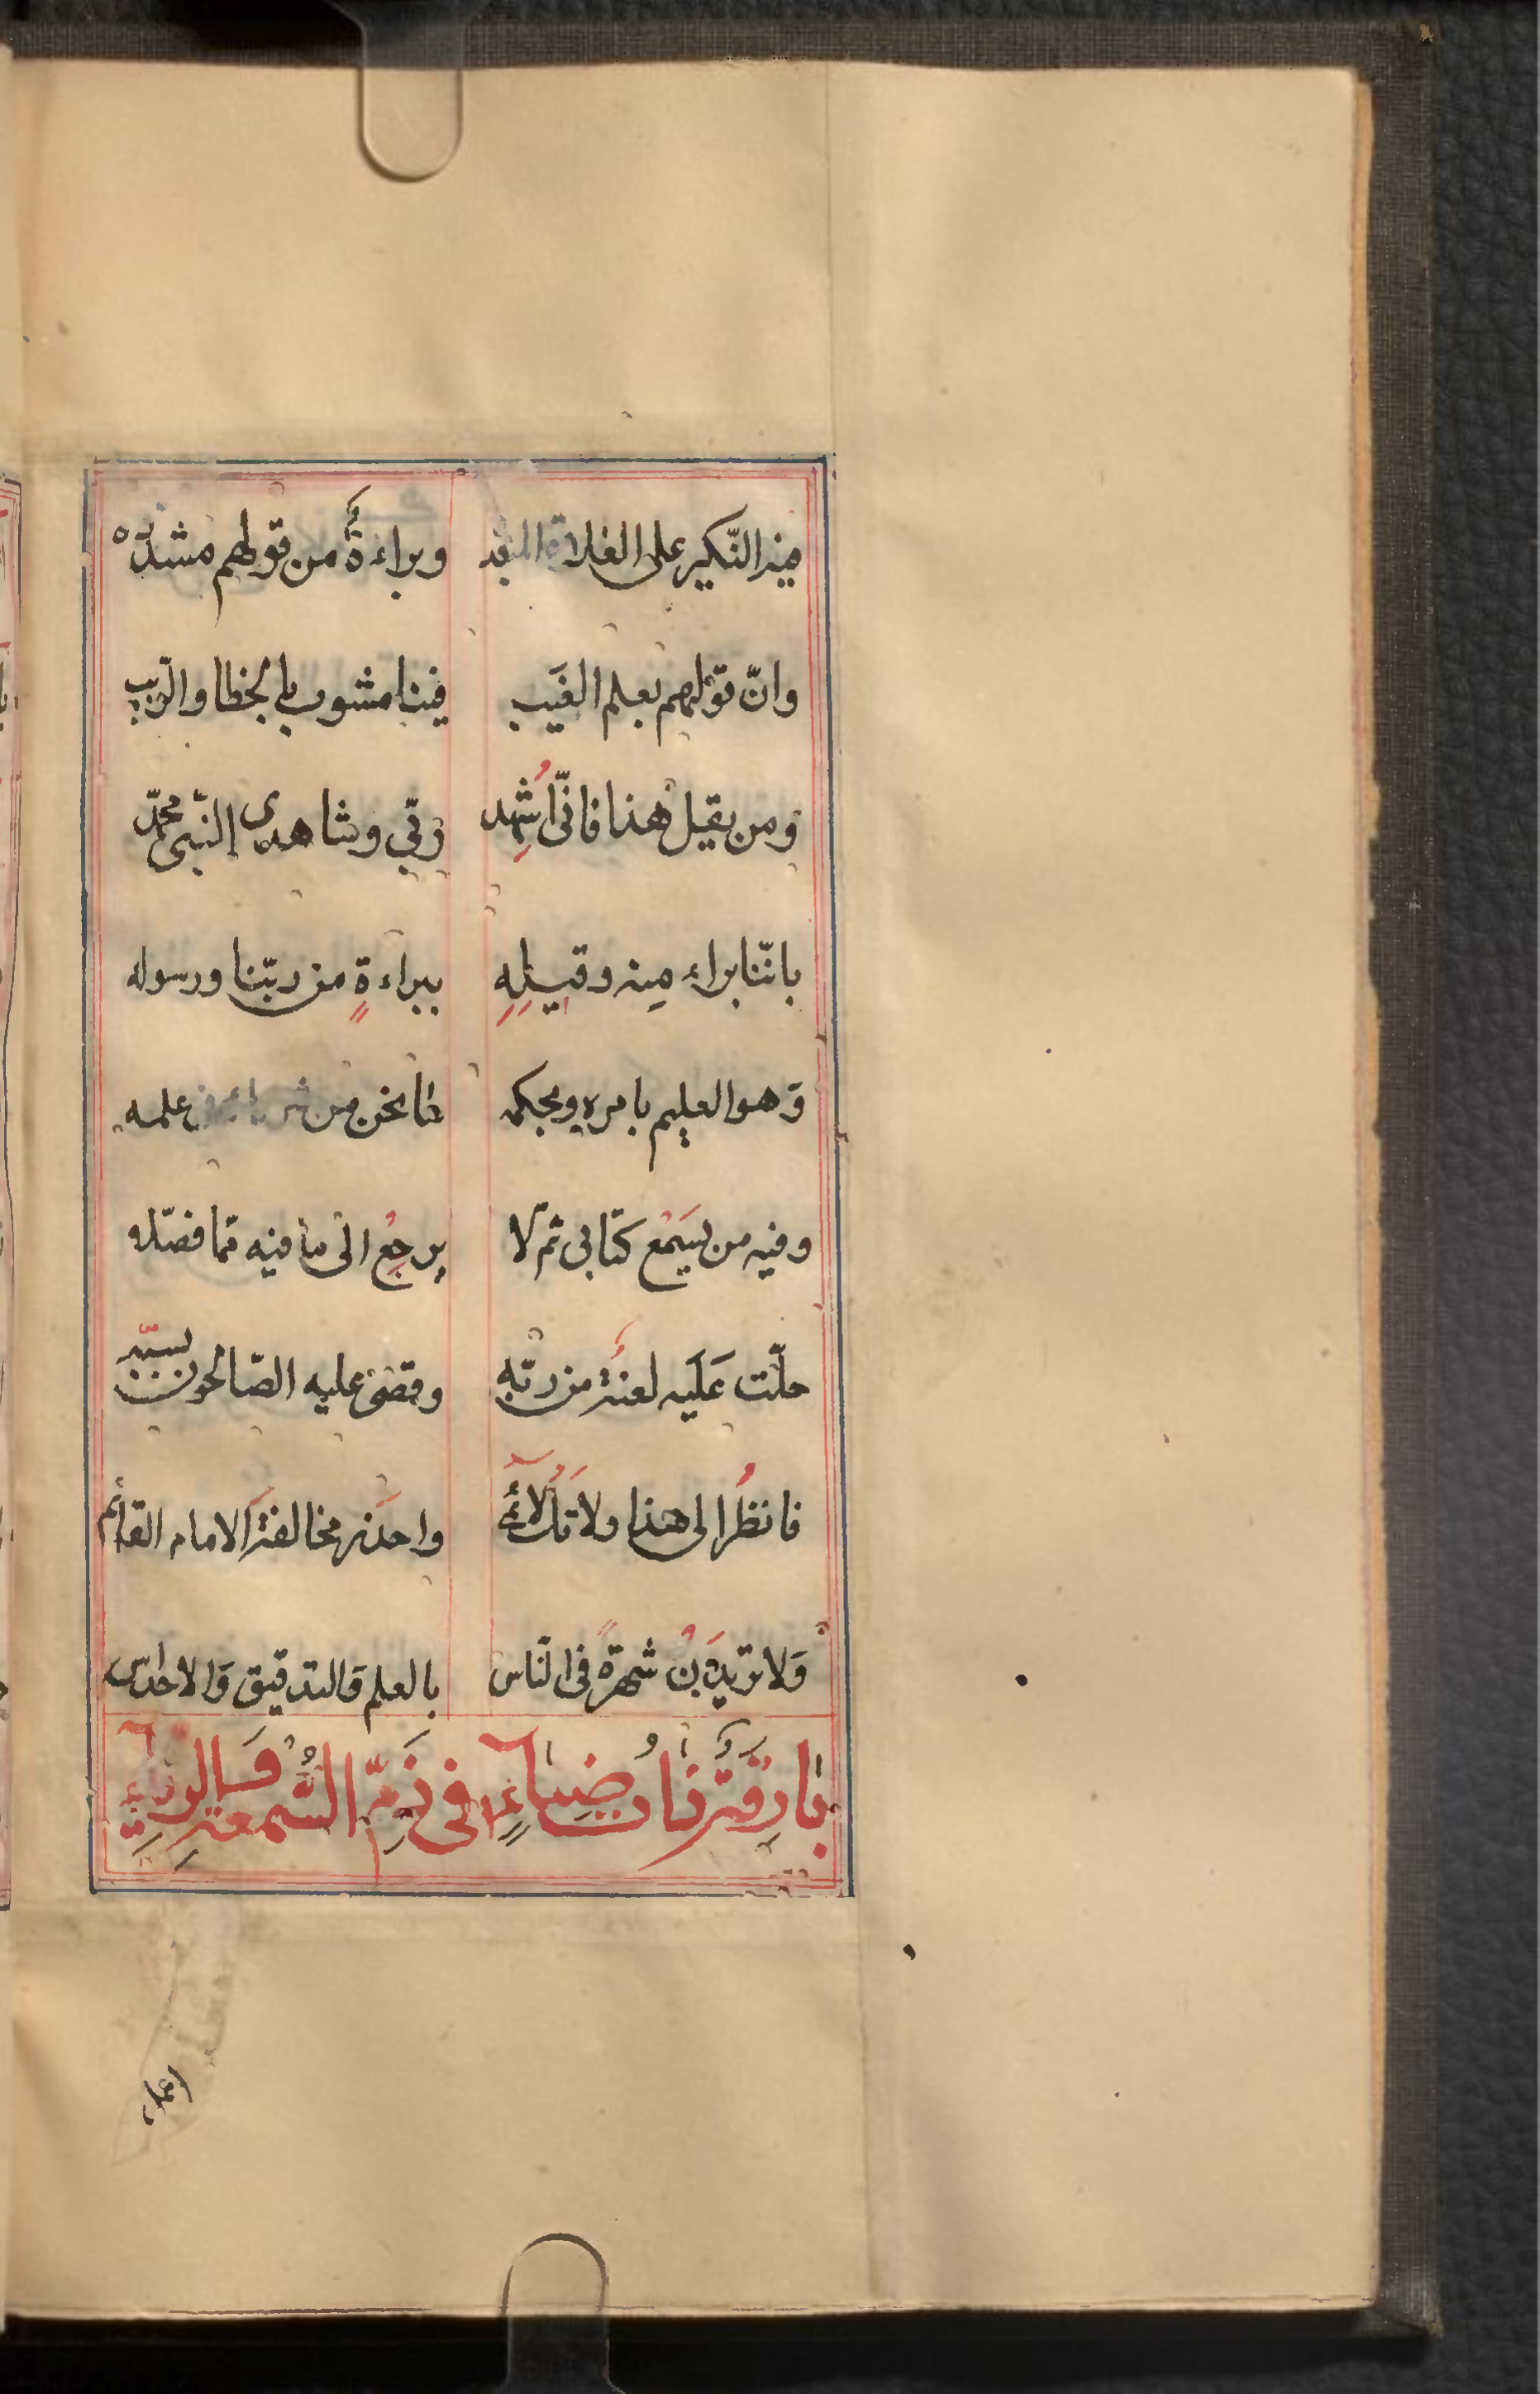 فيه النّكير على الغلاة المبعد وبراءةٌ من قولهم مشدّده
وانّ قولهم بعلم الغَيب فينا مشوب بالخطا والرّيب
ومن يقل هذا فانّى اُشهِد ربّي وشاهدى النّبى محمّد
باننّا براء مِنه وقبيلِهِ ببراءةٍ من ربّنا ورسوله
وَهو العليم بامره وبحكمه ما نحن من شركائه فى علمه
وفيه من يَسْمَع كتابى ثمّ لا يرجِعُ الى ما فيه ممّا فصّله
حلّت عَلَيه لعنةٌ من ربّهِ وقضى عليه الصّالحون بسبّه
فانظُر الى هذا ولا تَكُ لائمٌ واحذر مخالفةَ الامام القائم
وَلا تريدَنْ شهرةً فى النّاس بالعلم وَالتدقيق وَالاحداس
بارقةٌ ذات ضياءٍ فى ذَمّ السُّمعةِ وَالرياءِ